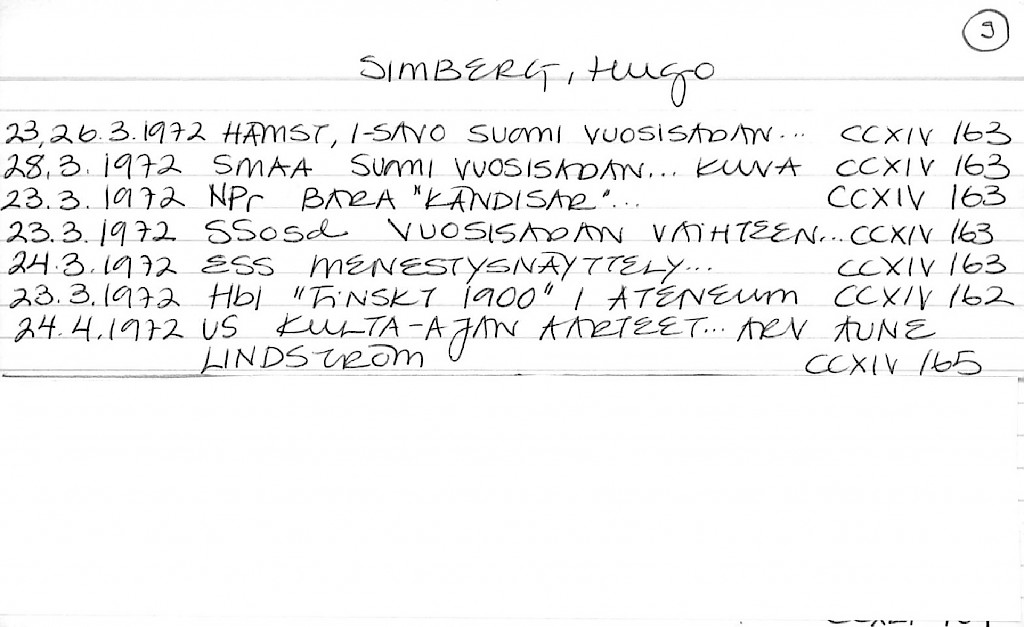 9
SIMBERG, Hugo
23, 26.3.1972 HÄMST, I-SAVO SUOMI VUOSISADAN... CCXIV 163
28.3.1972 SMAA SUOMI VUOSISADAN... KUVA CCXIV 163
23.3.1972 NPr BARA "KÄNDISAR"... CCXIV 163
23.3.1972 SSosd VUOSISADAN VAIHTEEN... CCXIV 163
24.3.1972 ESS MENESTYSNÄYTTELY... CCXIV 163
23.3.1972 Hbl "FINSKT 1900" I ATENEUM CCXIV 162
24.4.1972 US KULTA-AJAN AARTEET... ARV AUNE
LINDSTRÖM CCXIV 165